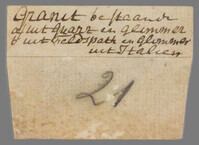 Granit bestaande
a uit Quarz in glimmer
b uit Feldspath in glimmer
uit Italien
21